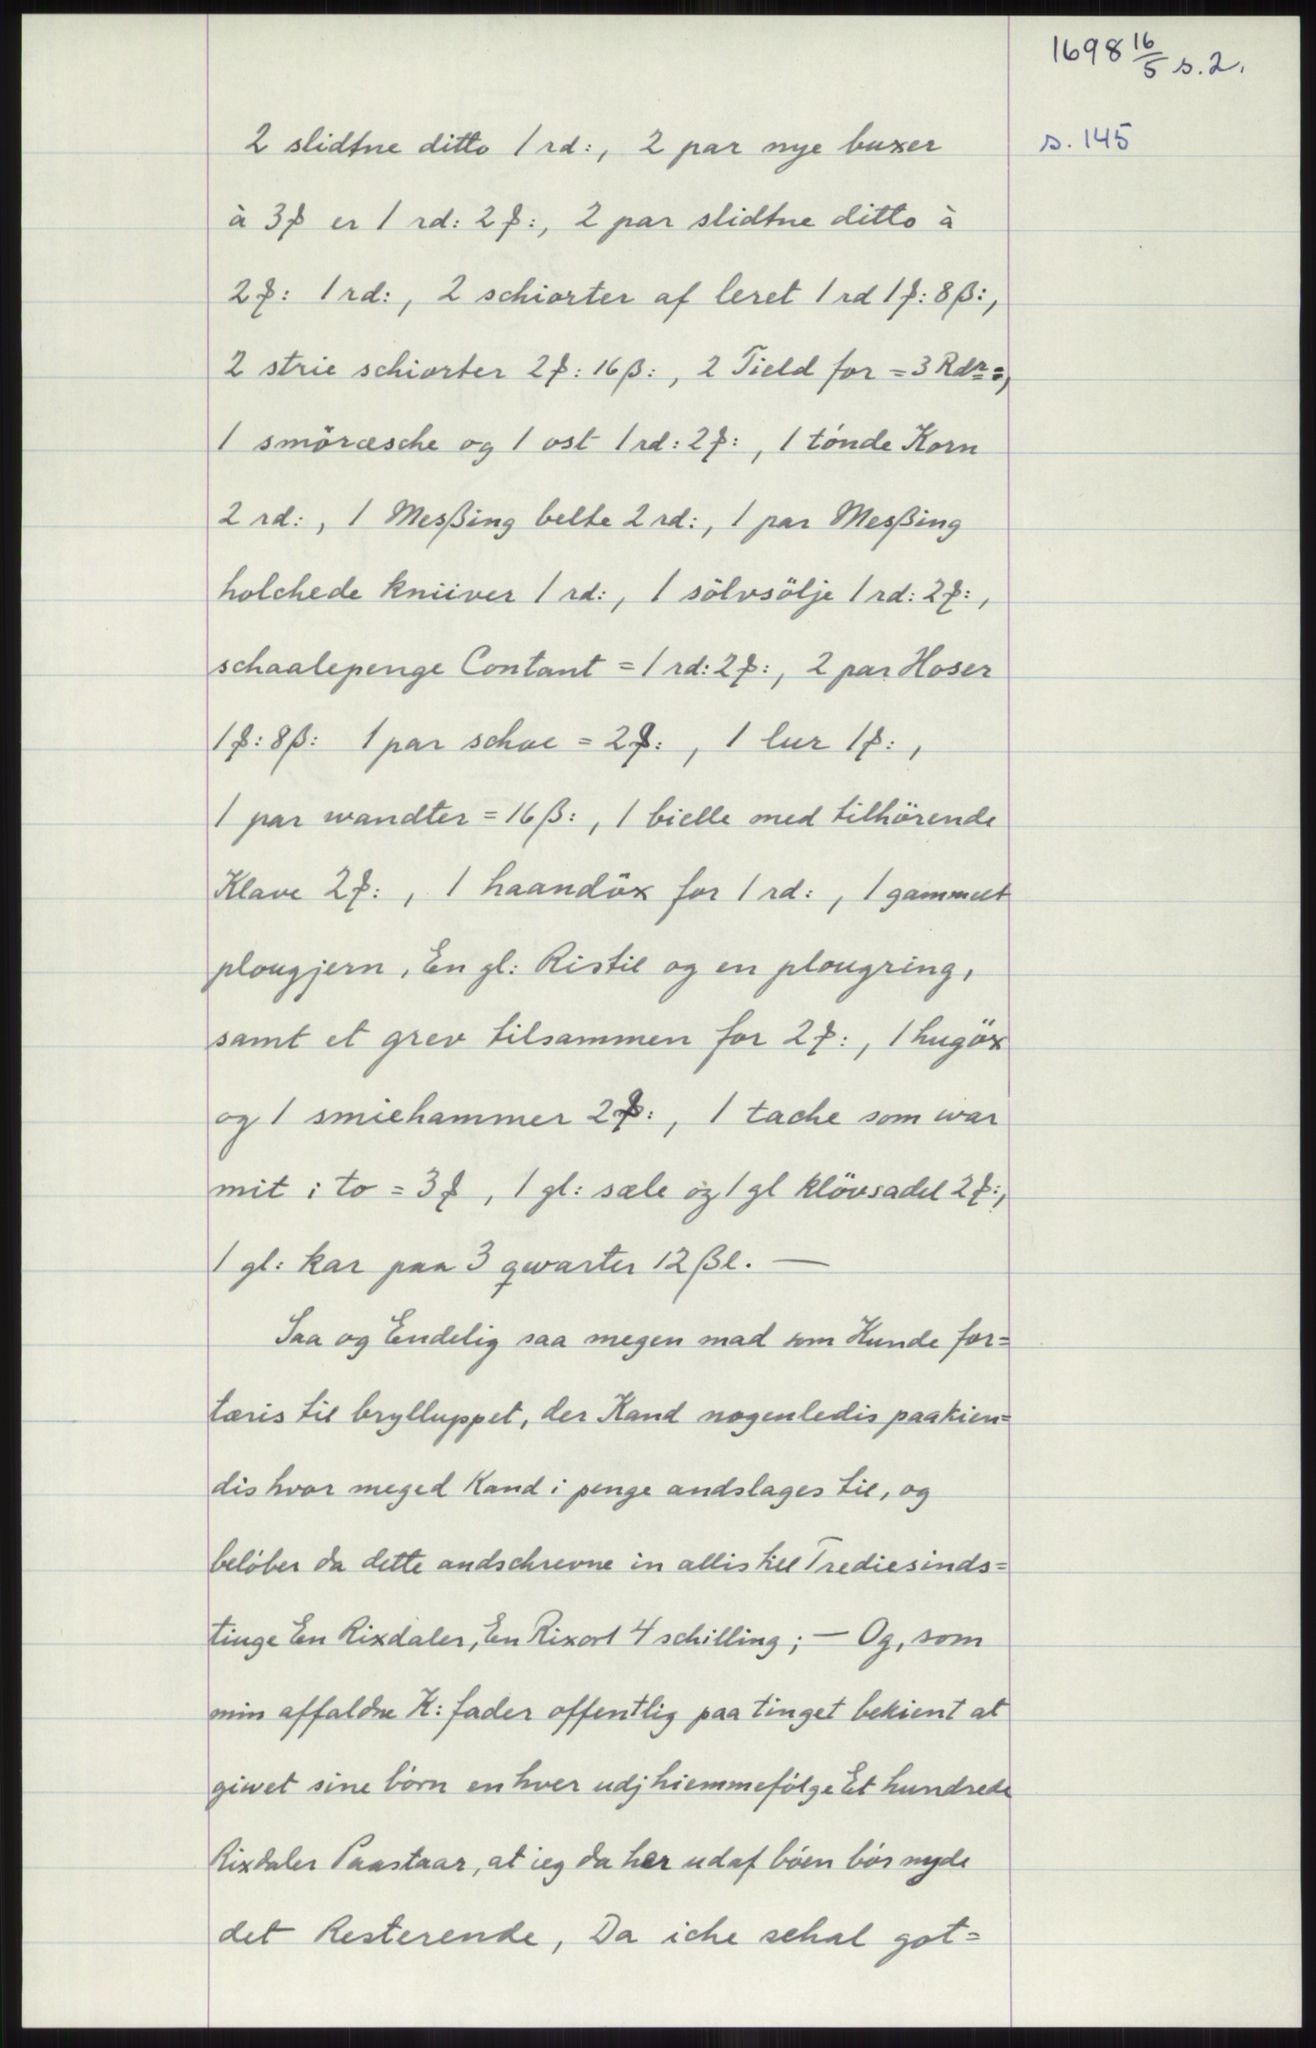 1698 16/5 s.2.
s. 145
2 slidtne ditto 1 rd:, 2 par nye buxer
à 3ꝑ er 1 rd: 2ꝑ:, 2 par slidtne ditto à
2ꝑ: 1 rd:, 2 schiorter af leret 1 rd 1ꝑ: 8β:,
2 strie schiorter 2ꝑ: 16β:, 2 Tield for = 3 Rdr=,
1 smöræsche og 1 ost 1 rd: 2ꝑ:, 1 tónde Korn
2 rd:, 1 Mesßing belte 2 rd:, 1 par Mesßing
holchede kniiver 1 rd:, 1 sölvsölje 1 rd: 2ꝑ:,
schaalepenge Contant = 1 rd: 2ꝑ:, 2 par Hoser
1ꝑ: 8β: 1 par schoe = 2ꝑ:, 1 lur 1ꝑ:,
1 par wandter = 16β:, 1 bielle med tilhörende
Klave 2ꝑ:, 1 haandöx for 1 rd:, 1 gammelt
plougjern, En gl: Ristil og en plougring,
samt et grev tilsammen for 2ꝑ:, 1 hugöx
og 1 smiehammer 2ꝑ:, 1 tache som war
mit i to = 3ꝑ, 1 gl: sæle og 1 gl klövsadel 2ꝑ:,
1 gl: kar paa 3 qwarter 12 βl. —
Saa og Endelig saa megen mad som Kunde for=
tæris til brylluppet, der Kand nogenledis paakien=
dis hvor meged Kand i penge andslages til, og
belóber da dette andschrevne in allis till Trediesinds=
tiuge En Rixdaler, En Rixort 4 schilling; — Og, som
min affaldne K: fader offentlig paa tinget bekient at
giwet sine börn en hver udj hiemmefölge Et hundrede
Rixdaler Paastaar, at ieg da her udaf bóen bór nyde
det Resterende, Da iche schal got=